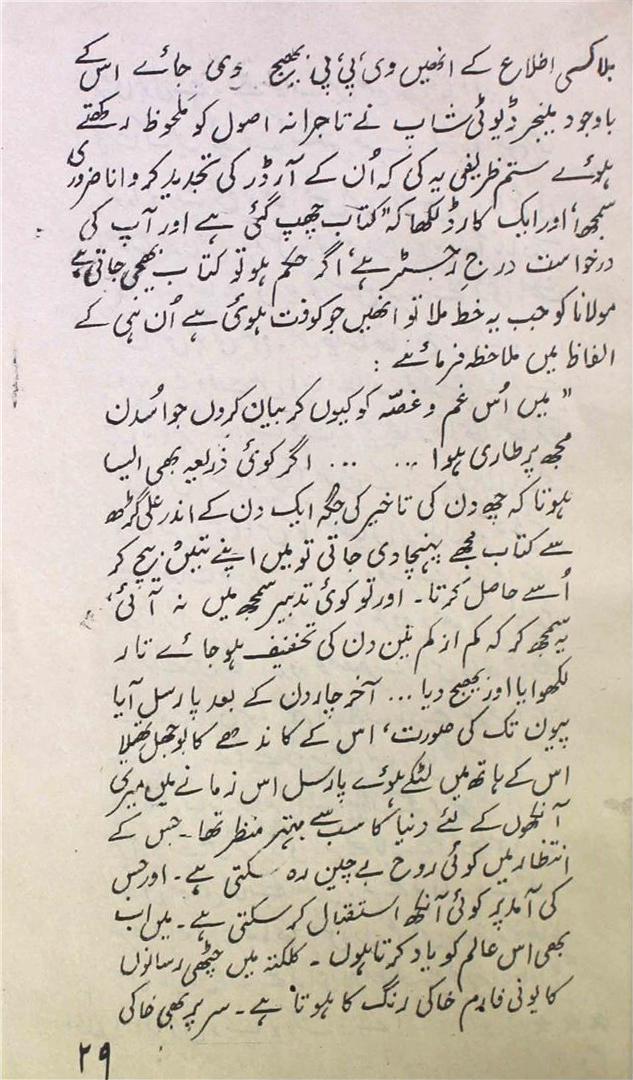 بلا کسی اطلاع کے انھیں وی، پی، پی بھیج دی جائے اس کے
باوجود منیجر ڈیوٹی شاپ نے تاجرانہ اصول کو ملحوظ رکھتے
ہوئے ستم ظریفی یہ کی کہ اُن کے آرڈر کی تجدید کروانا ضروری
سمجھا، اور ایک کارڈ لکھا کہ "کتاب چھپ گئی ہے اور آپ کی
درخواست درج رجسٹر ہے، اگر حکم ہو تو کتاب بھیجی جاتی ہے
مولانا کو جب یہ خط ملا تو انھیں جو کوفت ہوئی ہے اُن ہی کے
الفاظ میں ملاحظہ فرمائیے :
" میں اُس غم و غصّہ کو کیوں کر بیان کروں جو اُسدن
مجھ پر طاری ہوا ... ... اگر کوئی ذریعہ بھی ایسا
ہوتا کہ چھ دن کی تاخیر کی جگہ ایک دن کے اندر علی گڑھ
سے کتاب مجھے پہنچا دی جاتی تو میں اپنے تئیں بیچ کر
اُسے حاصل کرتا۔ اور تو کوئی تدبیر سمجھ میں نہ آئی،
یہ سمجھ کر کہ کم از کم تین دن کی تخفیف ہو جائے تار
لکھوایا اور بھیج دیا ... آخر چار دن کے بعد پارسل آیا
پیون تک کی صورت، اس کے کاندھے کا بوجھل تھیلا
اس کے ہاتھ میں لٹکے ہوئے پارسل اس زمانے میں میری
آنکھوں کے لئے دنیا کا سب سے بہتر منظر تھا۔ جس کے
انتظار میں کوئی روح بے چین رہ سکتی ہے۔ اور جس
کی آمد پر کوئی آنکھ استقبال کر سکتی ہے۔ میں اب
بھی اس عالم کو یاد کرتا ہوں۔ کلکتہ میں چٹھی رسانوں
کا یونی فارم خاکی رنگ کا ہوتا ہے۔ سر پر بھی خاکی
۲۹